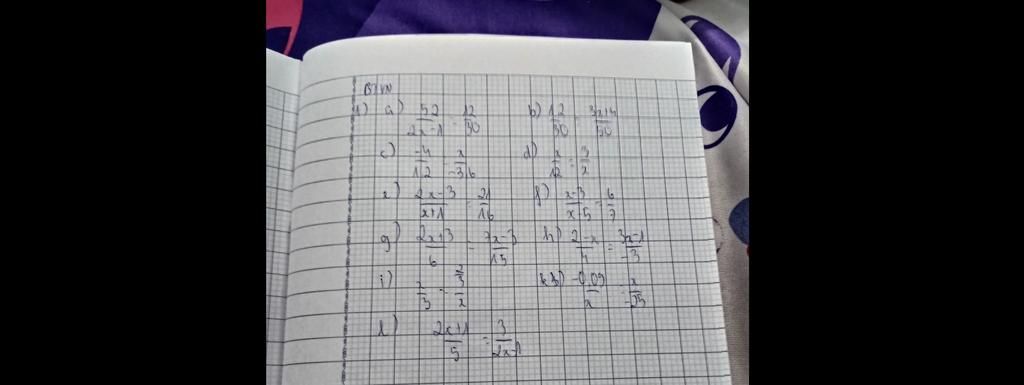 BTVN
1) a) 52/2x-1 = 12/30 b) 12/30 = 3x+4/50
c) -4/12 = x/-36 d) x/12 = 3/x
e) 2x-3/x+1 = 21/16 f) x-3/x-5 = 6/7
g) 2x+3/6 = 7x-3/15 h) 2-x/4 = 3x-1/-3
i) x/3 =
-0,09/x = x/-25
l) 2x+1/5 = 3/2x-1